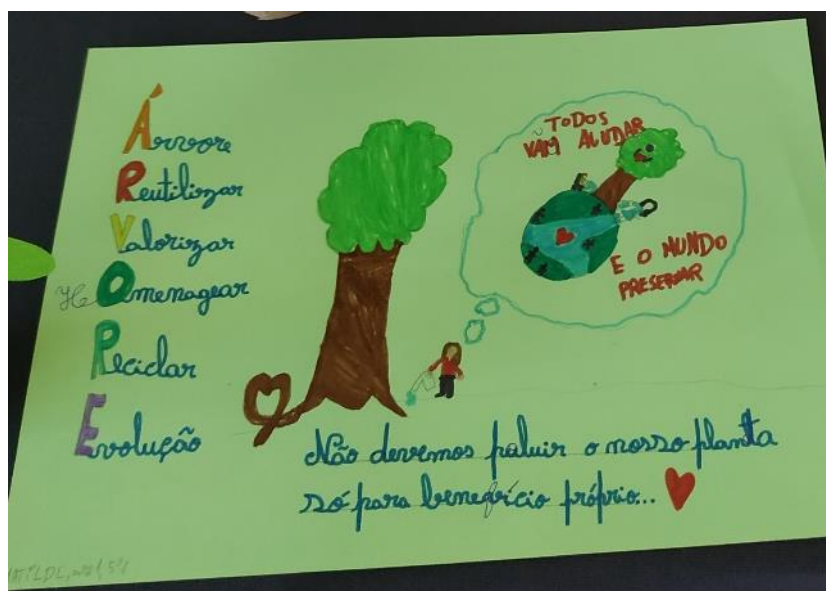 Árvore
Reutilizar
Valorizar
HOmenagear
Reciclar
Evolução
TODOS
VÃM AJUDAR
E O MUNDO
PRESERVAR
Não devemos paluir o nosso planta
só para benefício próprio...
MATILDE,